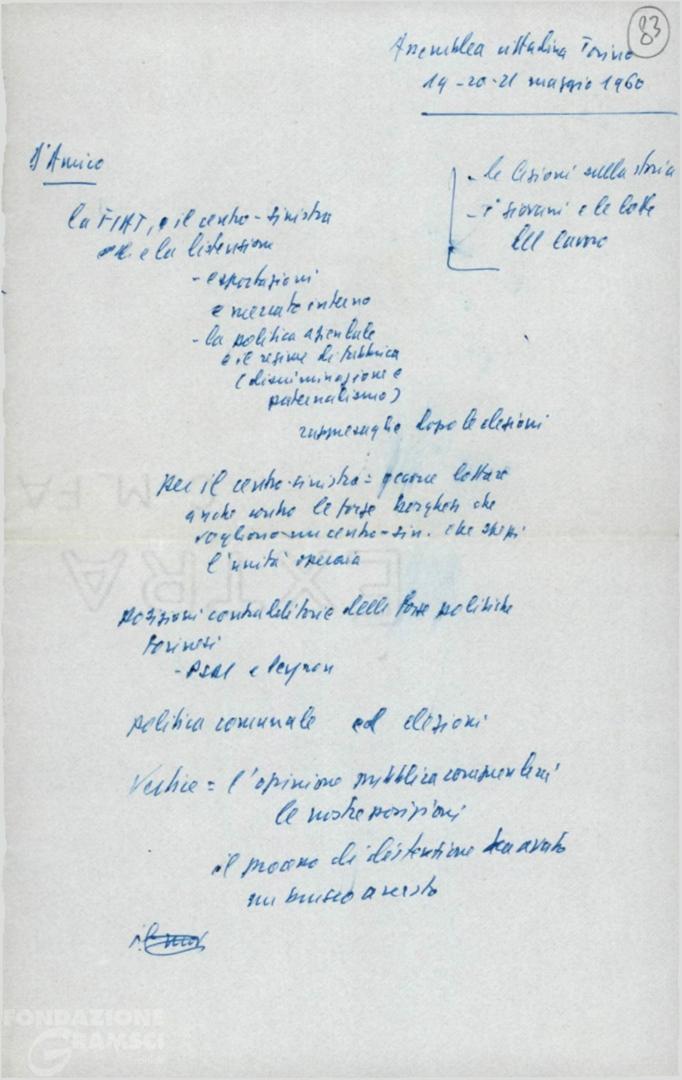 83
Assemblea cittadina Torino
19-20-21 maggio 1960
D'Amico
- le lezioni sulla storia
- i giovani e le lotte
del lavoro
la FIAT, e il centro-sinistra
e la distensione
- esportazioni
e mercato interno
- la politica aziendale
e il regime di fabbrica
(discriminazione e
paternalismo)
rappresaglie dopo le elezioni
per il centro-sinistra = occorre lottare
anche contro le forze borghesi che
vogliono un centro-sin. che spezzi
l'unità operaia
posizioni contradditorie delle forze politiche
torinesi
- PSDI e Peyron
politica comunale ed elezioni
= l'opinione pubblica
le nostre posizioni
il processo di distensione ha avuto
un brusco arresto
EXTRA
FONDAZIONE
GRAMSCI